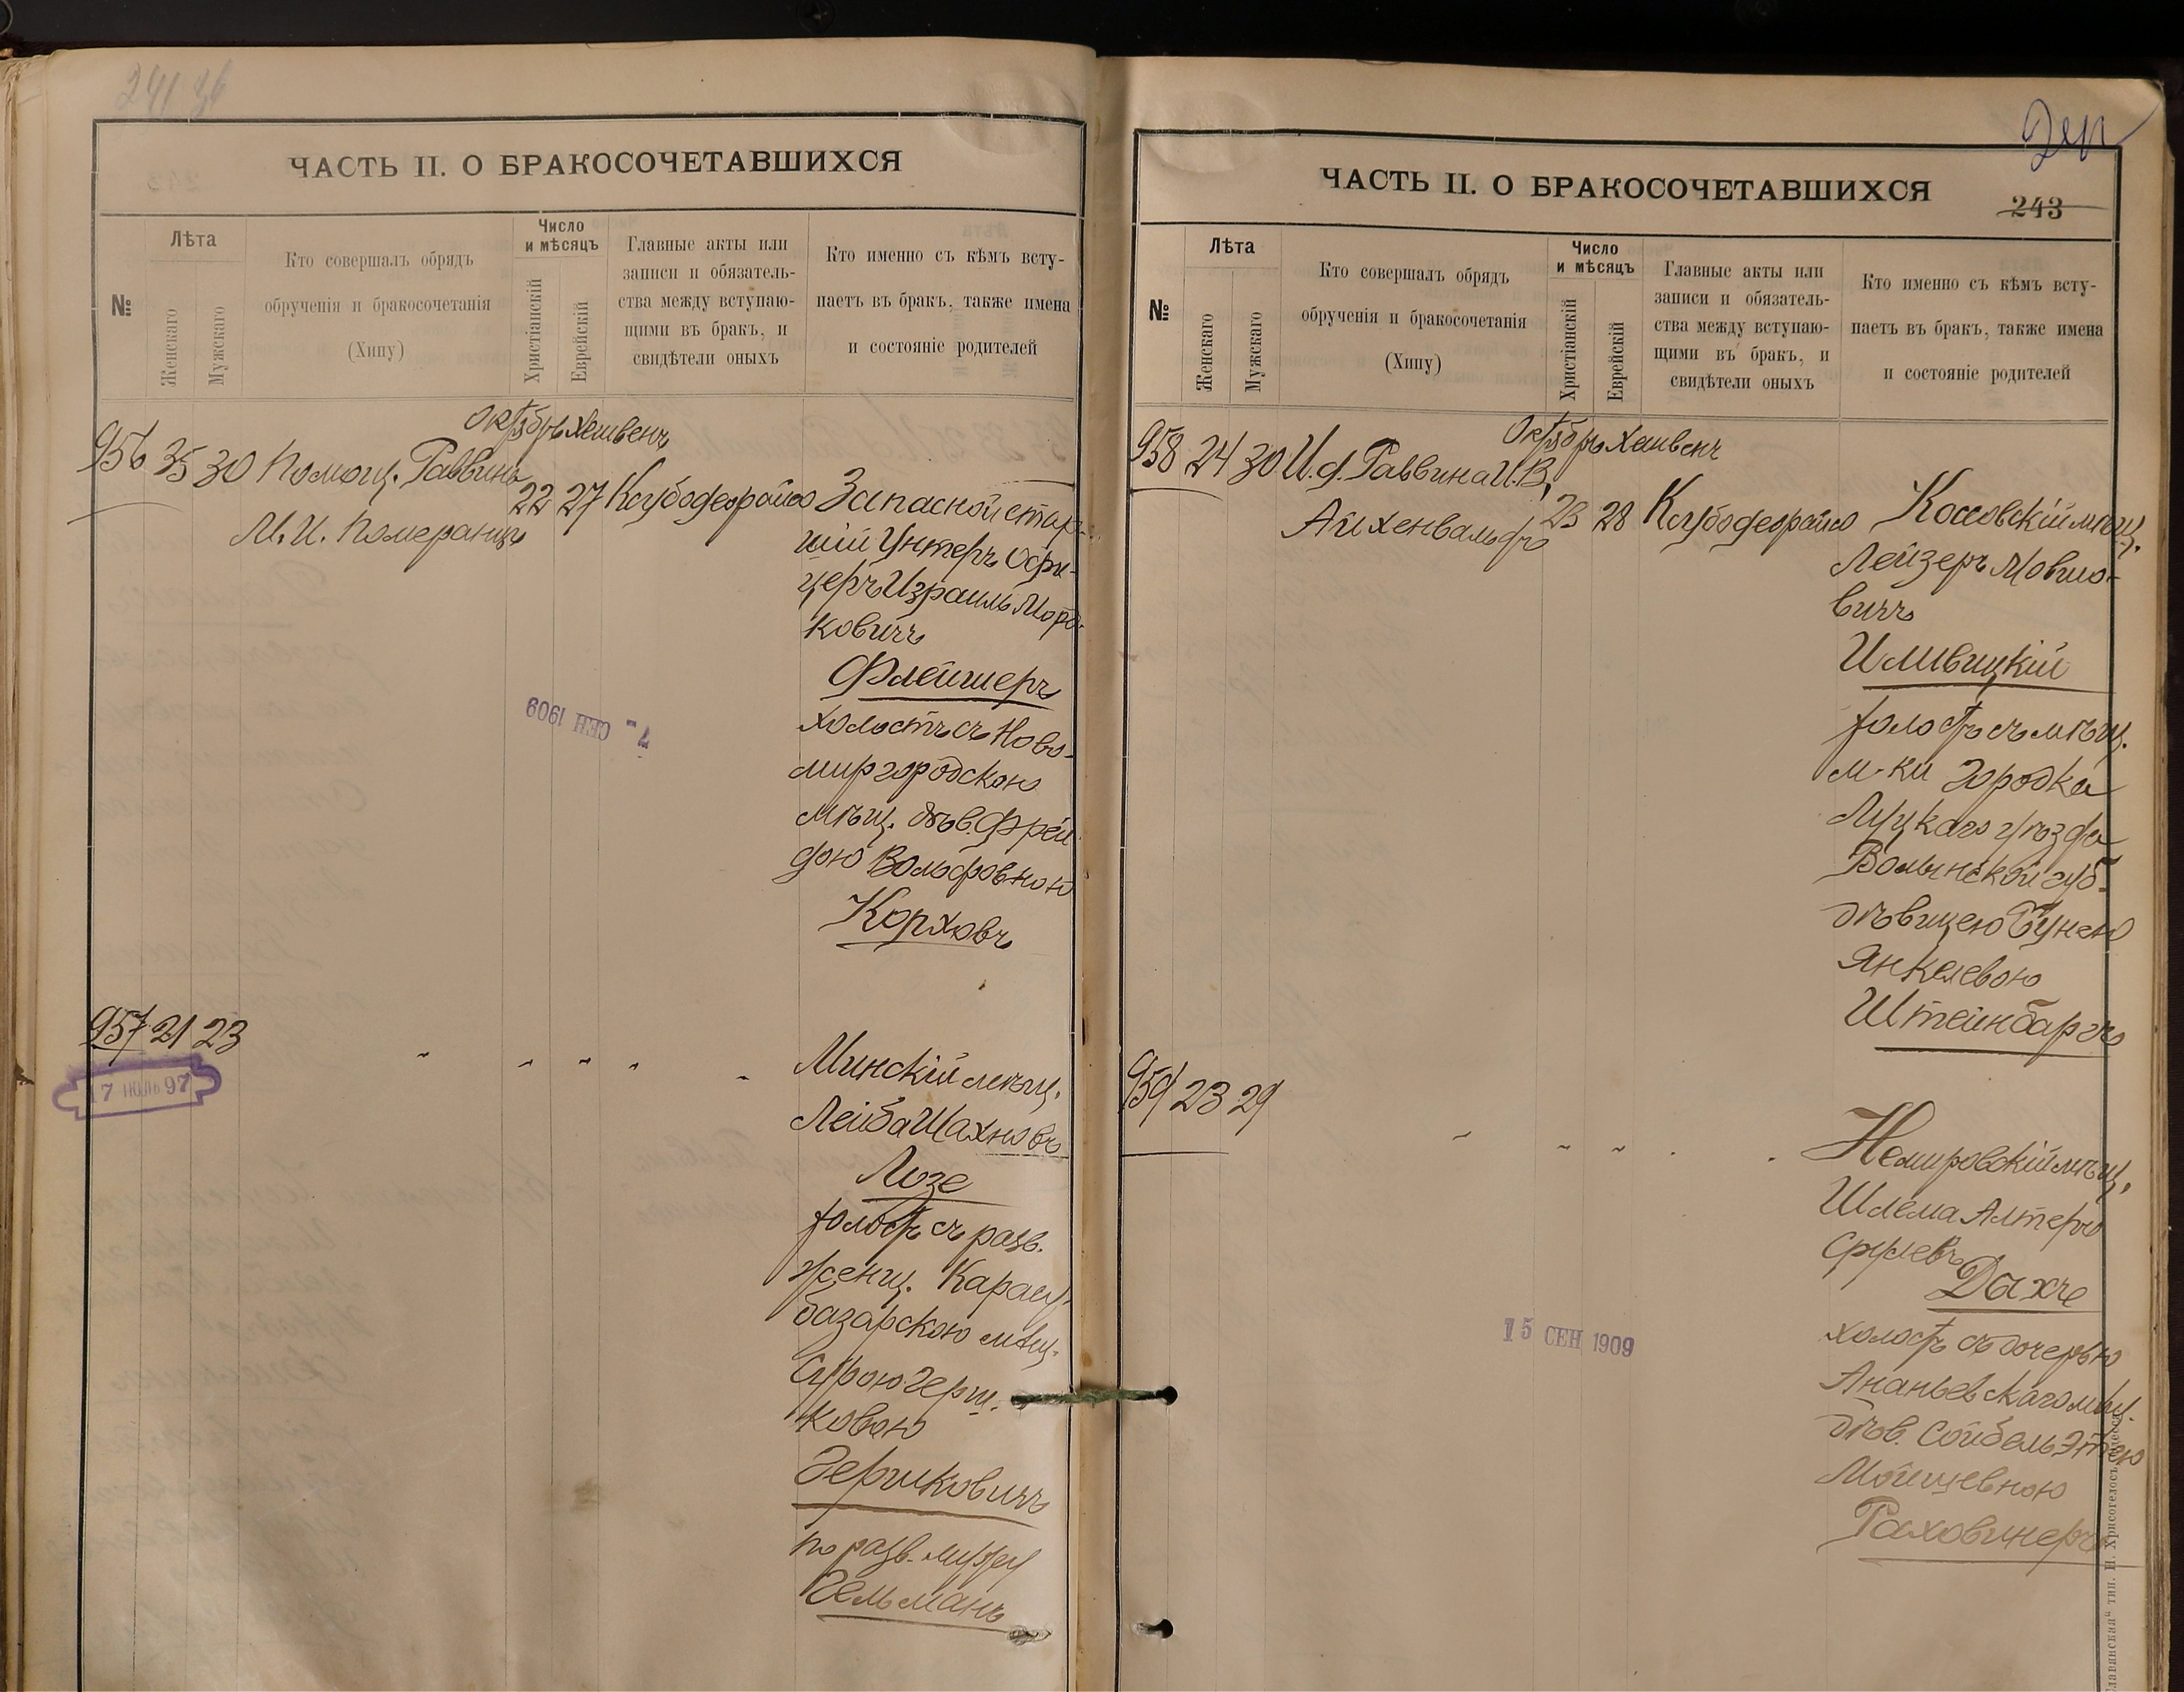 ЧАСТЬ II. О БРАКОСОЧЕТАВШИХСЯ
№
Лѣта
Женскаго
Мужскаго
Кто совершалъ обрядъ
обрученія и бракосочетанія
(Хипу)
Число
и мѣсяцъ
Христіанскій
Еврейскій
Главные акты или
записи и обязатель-
ства между вступаю-
щими въ бракъ, и
свидѣтели оныхъ
Кто именно съ кѣмъ всту-
паетъ въ бракъ, также имена
и состояніе родителей
Октябрь Хешвенъ
956 35 30 Помощ. Раввина
М. И. Померанцъ
22 27
Запасной стар-
шій Унтеръ Офи-
церъ Израиль Морд-
ковичъ
Флейшеръ
холостъ съ Ново-
миргородскою
мѣщ. дѣв. Фрей
дою Вольфовною
Корховъ
7- СЕН 1909
957 21 23
17 ІЮЛЬ 97
Минскій мѣщ.
Лейба Шахновъ
Лозе
холостъ съ разв.
женщ. Карасу-
базарскою мѣщ.
Сурою Герш-
ковою
Гершковичъ
по разв. мужу
Гельманъ
ЧАСТЬ II. О БРАКОСОЧЕТАВШИХСЯ
243
№
Лѣта
Женскаго
Мужскаго
Кто совершалъ обрядъ
обрученія и бракосочетанія
(Хипу)
Число
и мѣсяцъ
Христіанскій
Еврейскій
Главные акты или
записи и обязатель-
ства между вступаю-
щими въ бракъ, и
свидѣтели оныхъ
Кто именно съ кѣмъ всту-
паетъ въ бракъ, также имена
и состояніе родителей
Октябрь Хешвенъ
958 24 30 И. д. Раввина И. В.
Айхенвальдъ
23 28
Коссовскій мѣщ.
Лейзеръ Мовшо-
вичъ
Иливицкій
холостъ съ мѣщ.
м-ки Городка
Луцкаго уѣзда
Волынской губ.
дѣвицею Бунею
Янкелевою
Штейнбаргъ
959 23 29
Немировскій мѣщ.
Шлема Алтеръ
Срулевъ
Дахче
холостъ съ дочерью
Ананьевскаго мѣщ.
дѣв. Сойбель Этею
Мойшевною
Раховинеръ
15 СЕН 1909